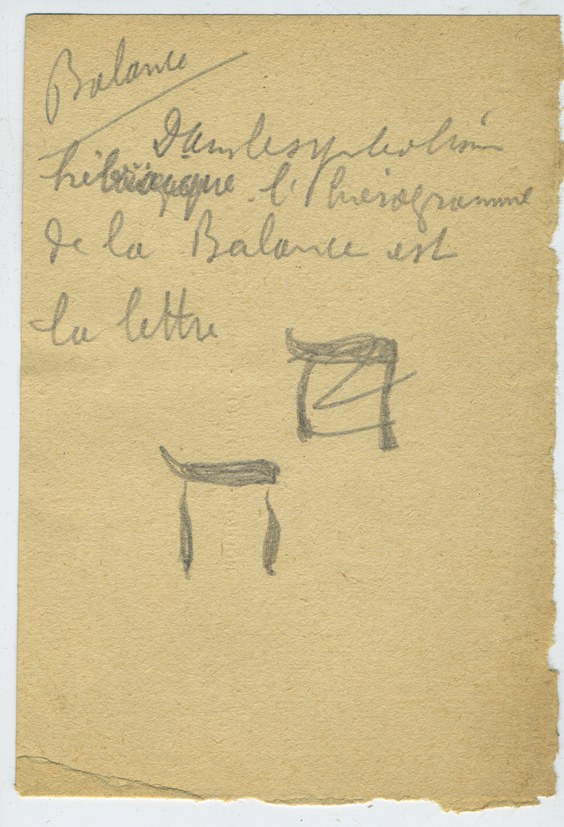 Balance
Dans le symbolisme
hébraïque l'hiérogramme
de la Balance est
la lettre
ח